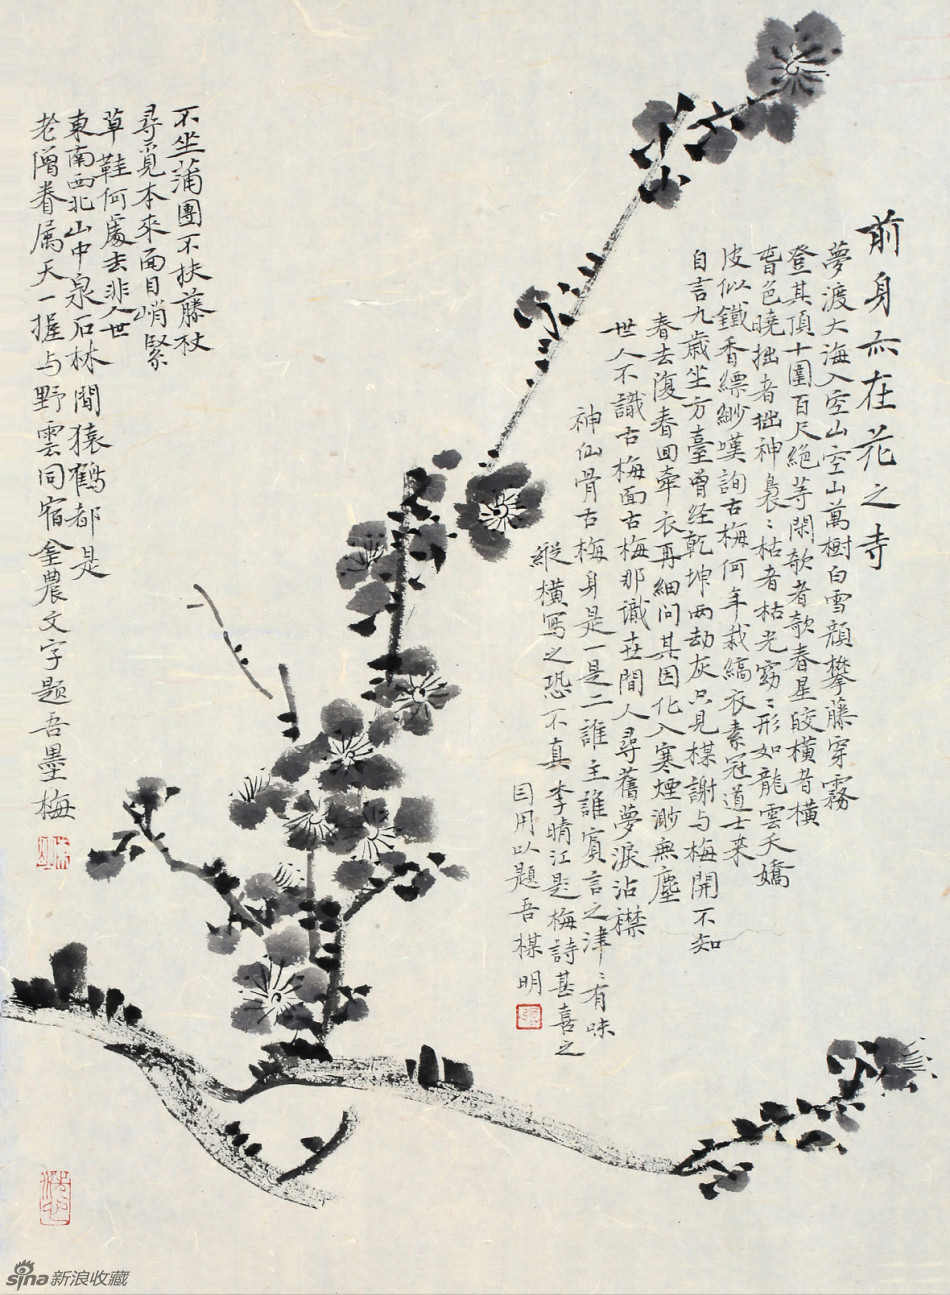 前身亦在花之寺
夢渡大海入空山空山萬樹白雪顔攀藤穿霧
登其頂十圍百尺絕等閑欹者欹春星皎橫者橫
色曉拙者拙神裊〻枯者枯光窈〻形如龍雲夭嬌
皮似鐵香縹緲嘆詢古梅何年栽縞衣素冠道士来
自言九歲坐方臺曾经乾坤两劫灰只見楳謝与梅開不知
春去復春回牽衣再細问其因化入寒煙渺無塵
世人不識古梅面古梅那識世間人尋舊夢淚沾襟
神仙骨古梅身是一是二誰主誰賓言之津〻有味
縱橫寫之恐不真 李晴江是梅詩甚喜之
因用以題吾楳 明
不坐蒲團不扶藤杖
尋覓本來面目峭緊
草鞋何處去非人世
東南西北山中泉石林間猿鶴都是
老僧眷属天一握与野雲同宿金農文字題吾墨梅
sina新浪收藏